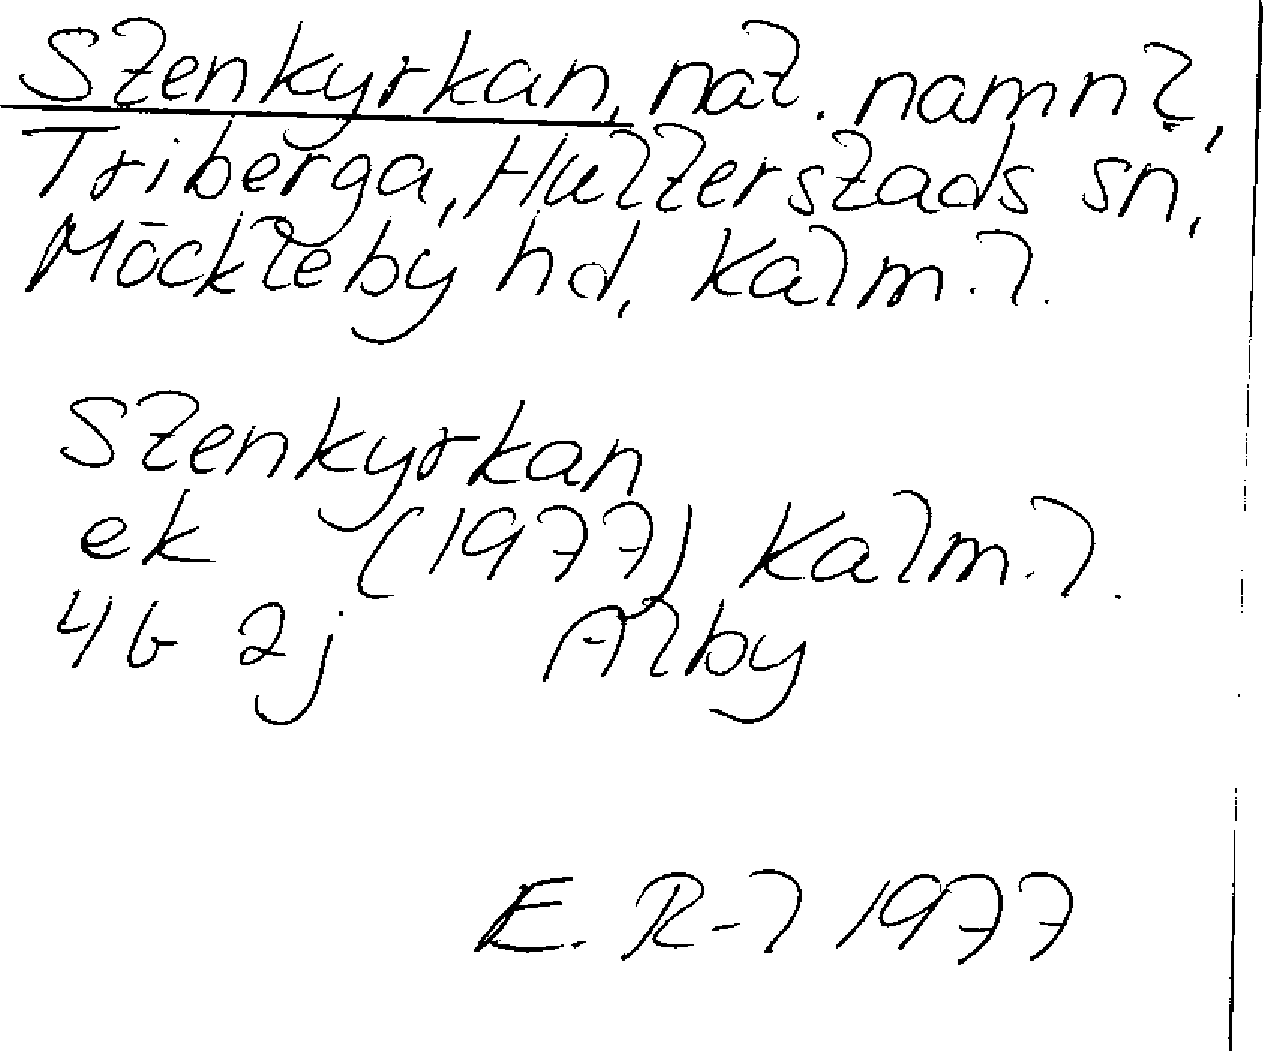 Stenkyrkan, nat. namn?,
Triberga, Hulterstads sn,
Möckleby hd, Kalm. l.
Stenkyrkan
ek (1977) Kalm. l.
4G 2j Alby
E. R-l 1977